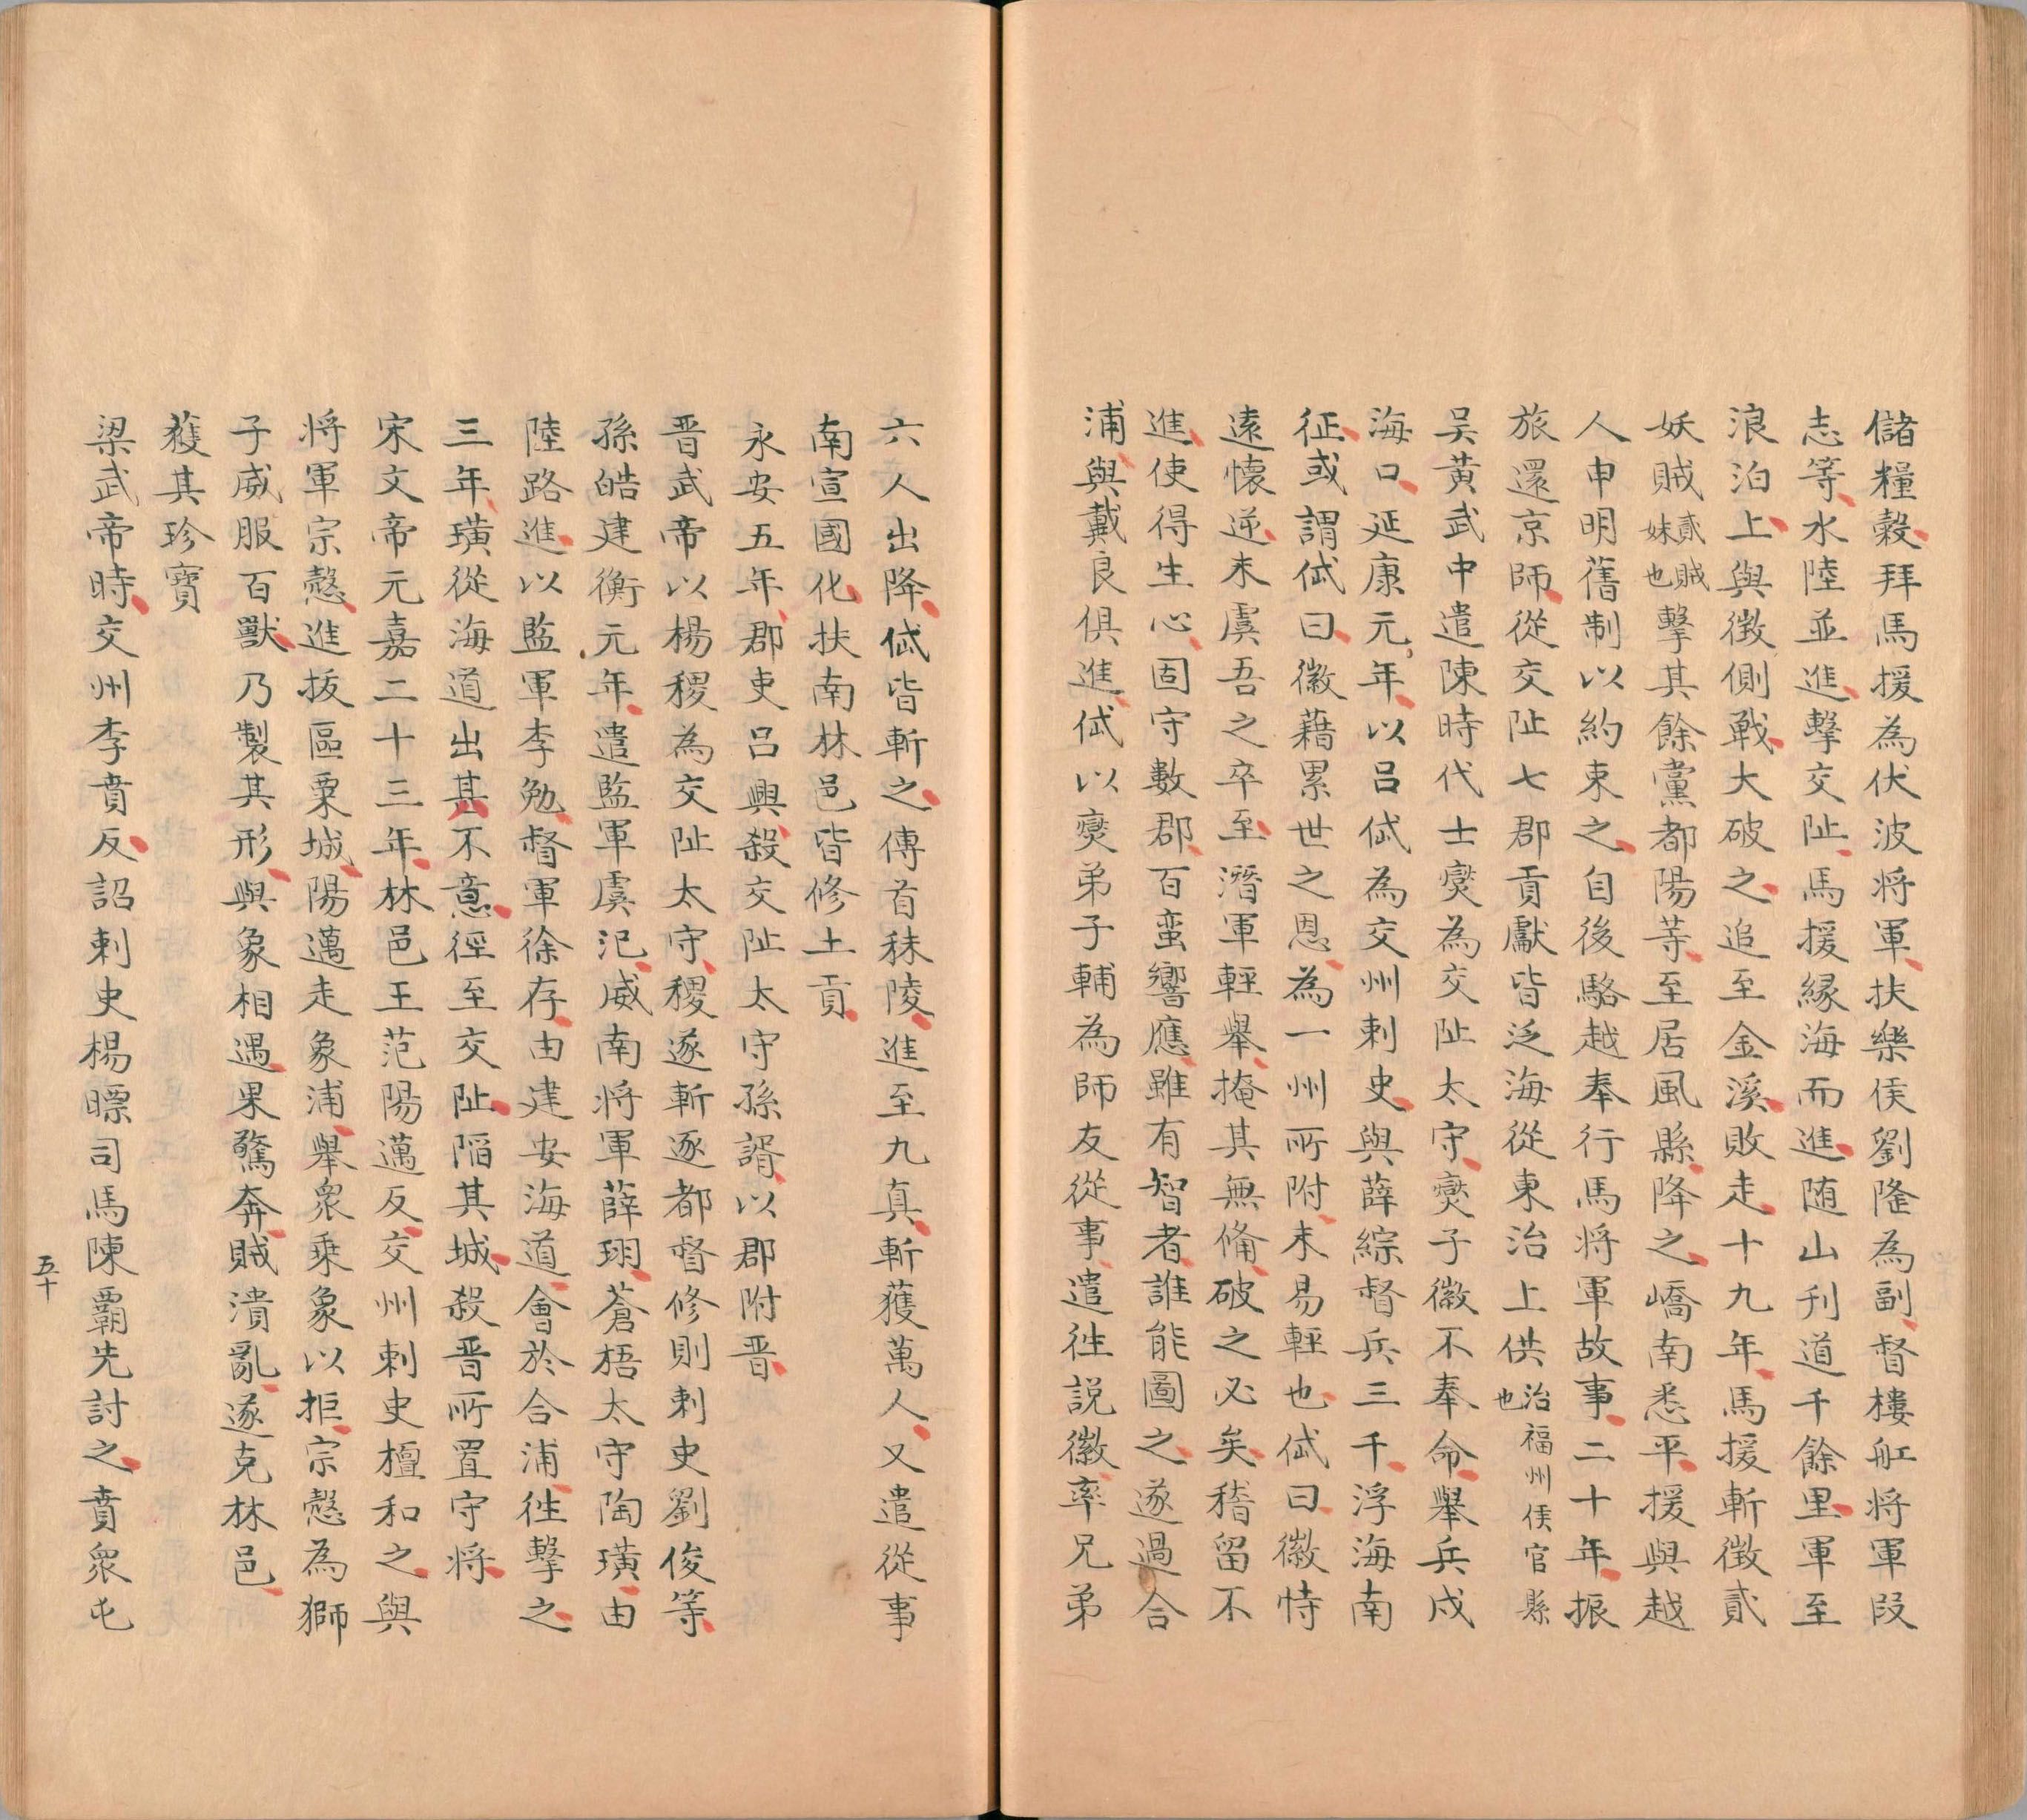 儲糧穀拜馬援為伏波将軍扶樂侯劉隆為副督樓舡将軍段
志等水陸並進擊交阯馬援縁海而進随山刋道千餘里軍至
浪泊上與徴側戰大破之追至金溪敗走十九年馬援斬徴貳
妖賊貳賊妹也擊其餘黨都陽等至居風縣降之嶠南悉平援與越
人申明舊制以約束之自後駱越奉行馬将軍故事二十年振
旅還京師從交阯七郡貢獻皆泛海從東治上供治福州侯官縣也
吴黄武中遣陳時代士燮為交阯太守燮子徽不奉命舉兵戍
海口延康元年以吕岱為交州刺史與薛綜督兵三千浮海南
征或謂岱曰徽藉累世之恩為一州所附未易輕也岱曰徽恃
遠懷逆未虞吾之卒至潛軍輕舉掩其無俻破之必矣稽留不
進使得生心固守數郡百蛮響應雖有智者誰能圖之遂過合
浦與戴良俱進岱以燮弟子輔為師友從事遣徃説徽率兄弟
六人出降岱皆斬之傳首秣陵進至九真斬獲萬人又遣從事
南宣國化扶南林邑皆修土貢
永安五年郡吏吕興殺交阯太守孫諝以郡附晋
晋武帝以楊稷為交阯太守稷遂斬逐都督修則刺史劉俊等
孫皓建衡元年遣監軍虞汜威南将軍薛珝蒼梧太守陶璜由
陸路進以監軍李勉督軍徐存由建安海道會於合浦徃擊之
三年璜從海道出其不意徑至交阯陷其城殺晋所置守将
宋文帝元嘉二十三年林邑王范陽邁反交州刺史檀和之與
将軍宗慤進抜區粟城陽邁走象浦舉衆乘象以拒宗慤為獅
子威服百獸乃製其形與象相遇果驚奔賊潰亂遂克林邑
獲其珍寳
梁武帝時交州李賁反詔刺史楊瞟司馬陳霸先討之賁衆屯
五十